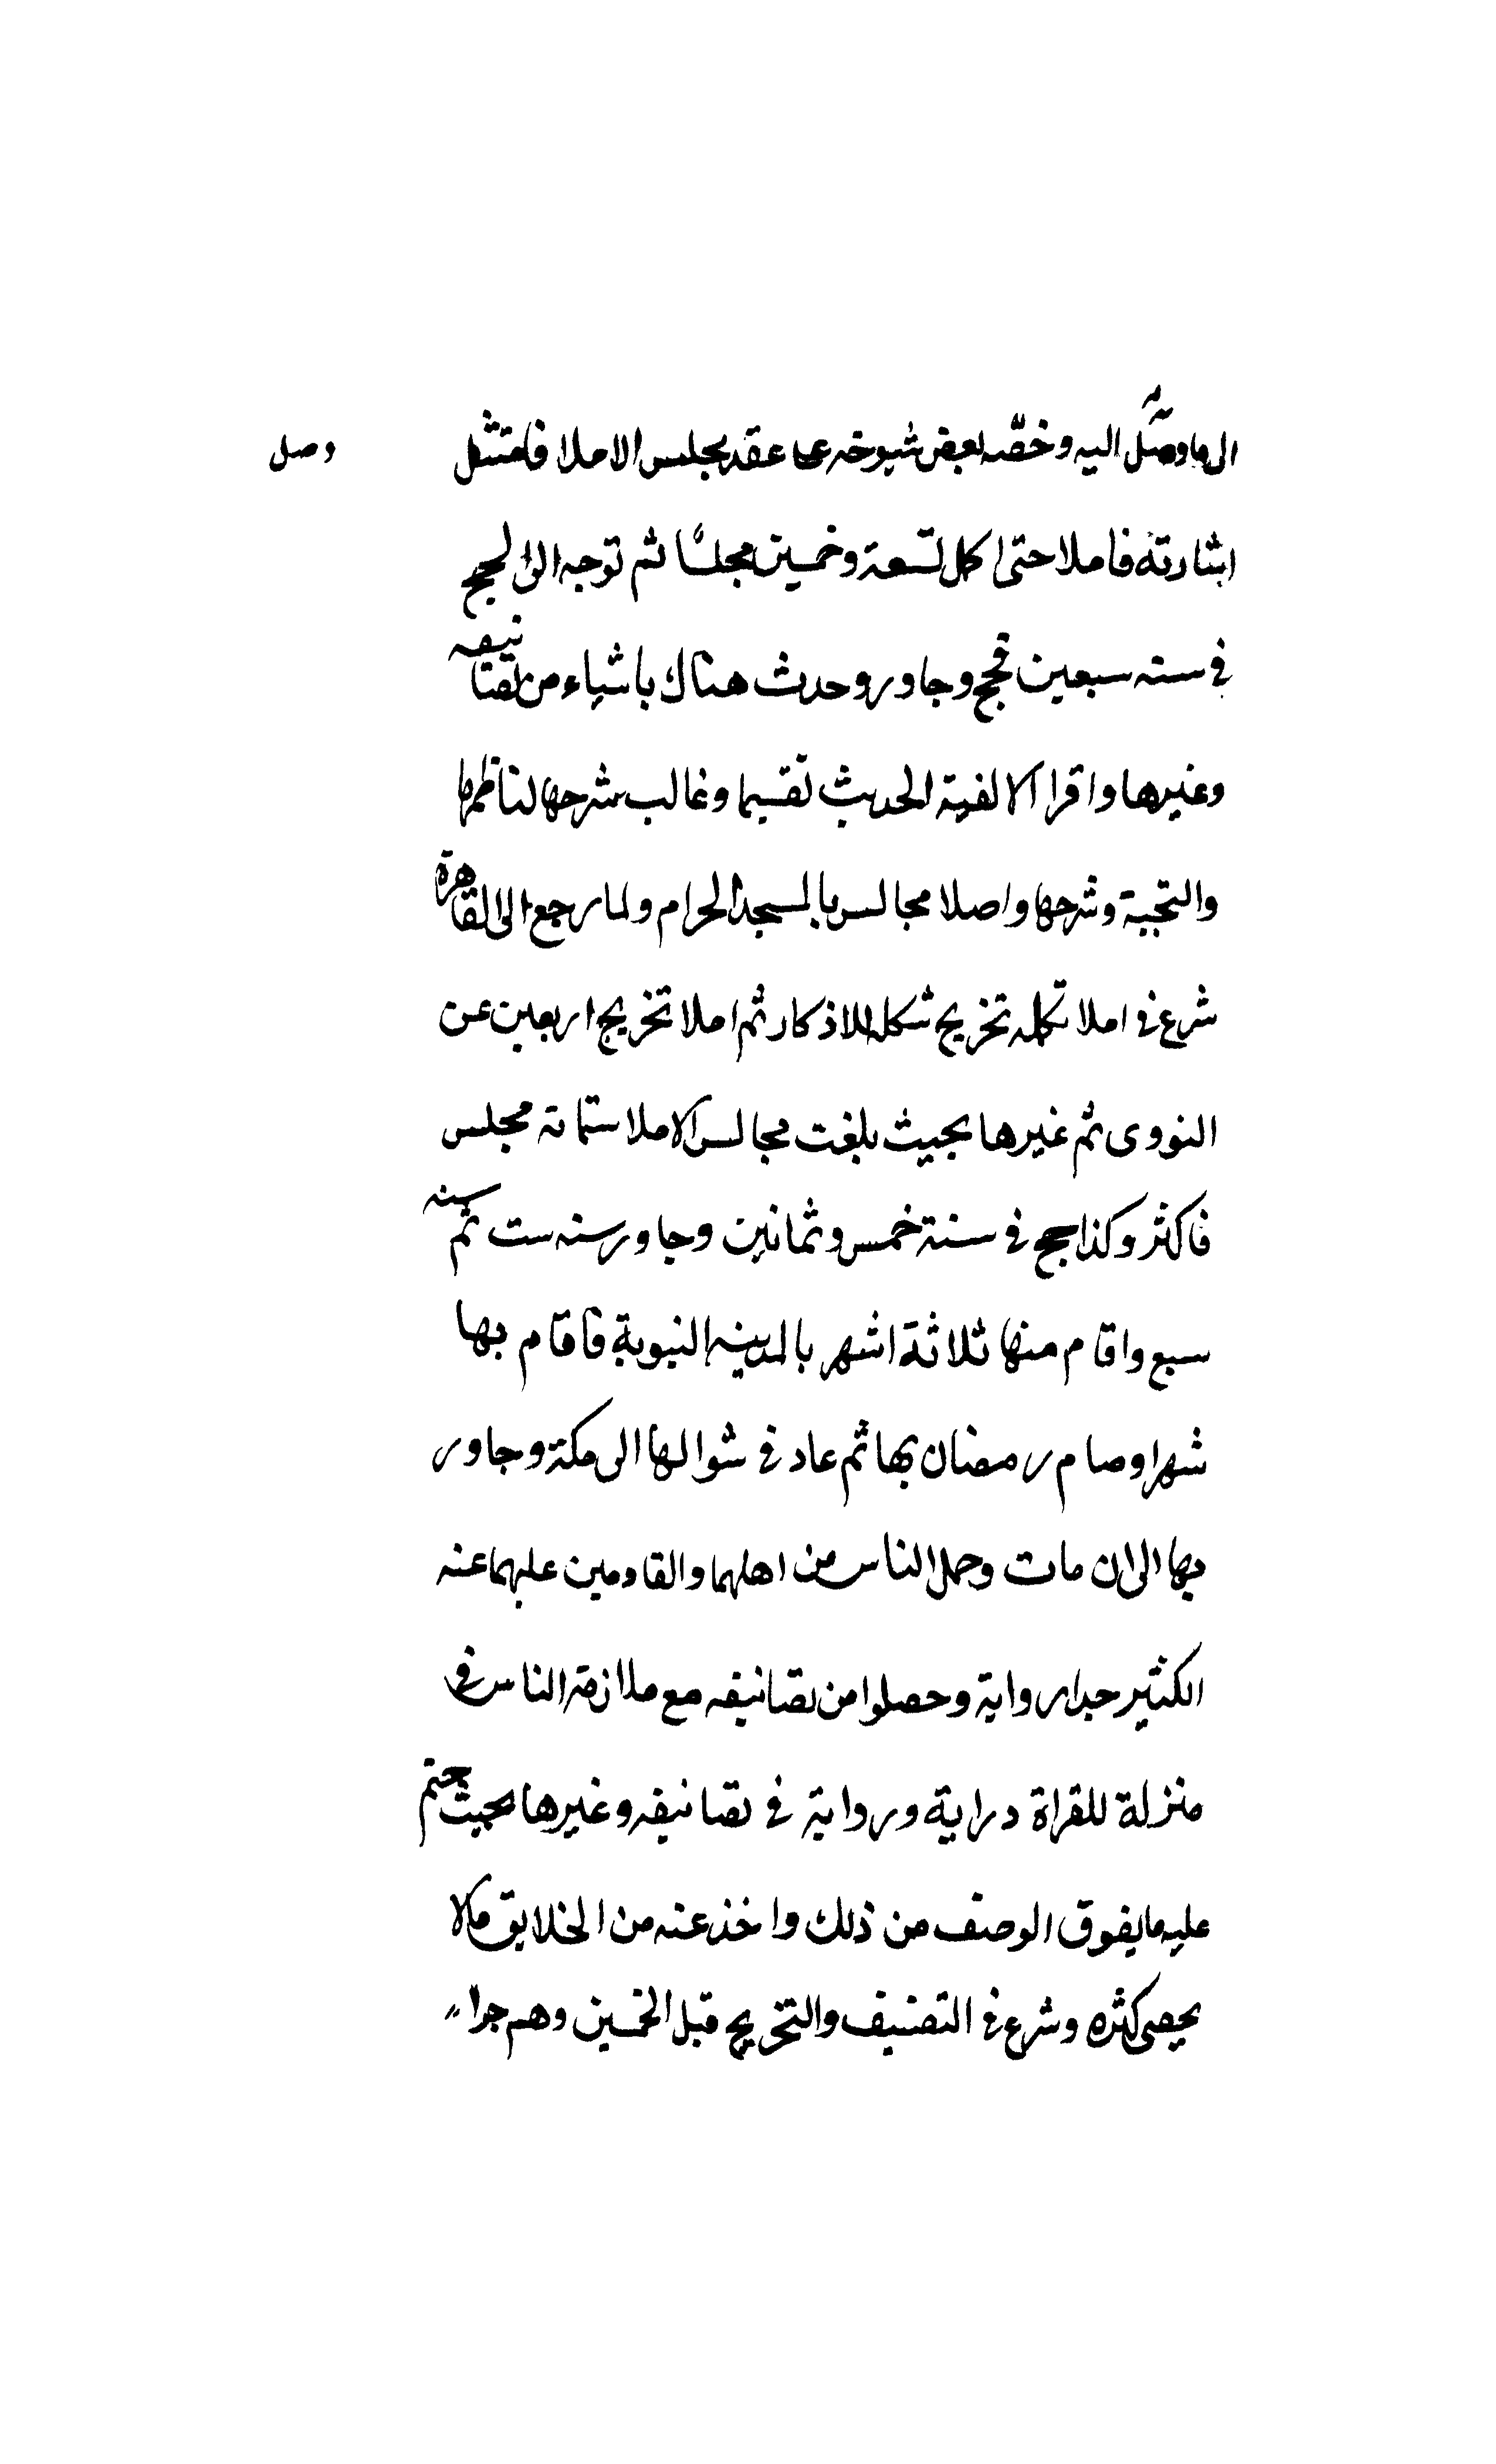 الى ما وصل اليه وخصه بعض شيوخه على عقد مجلس الاملا فامتثل وصل
اشارته فاملا حتى اكمل تسعة وخمسين مجلسًا ثم توجه الى الحج
في سنه سبعين فحج وجاور وحدث هناك باشياء من تصانيفه
وغيرها واقرا الالفية الحديث تقسيما وغالب شرحها لناظمها
والنخبة وشرحها واملا مجالس بالمسجد الحرام ولما رجع الى القاهرة
شرع في املا تكمله تخريج شيخه للاذكار ثم املا تخريج اربعين عن
النووى ثم غيرها بحيث بلغت مجالس الاملا ستمائة مجلس
فاكثر وكذا حج في سنة خمس وثمانين وجاور سنه ست ثم سنه
سبع واقام منها ثلاثة اشهر بالمدينه النبوية فاقام بها
شهرا وصام رمضان بها ثم عاد في شوالها الى مكة وجاور
بها الى ان مات وحمل الناس من اهلهما والقادمين عليهما عنه
الكثير جدا رواية وحصلوا من تصانيفه مع ملازمة الناس في
منزله للقراة دراية ورواية في تصانيفه وغيرها بحيث ختم
عليه ما يفوق الوصف من ذلك واخذ عنه من الخلايق مالا
يحصى كثره وشرع في التصنيف والتخريج قبل الخمسين وهم جرا